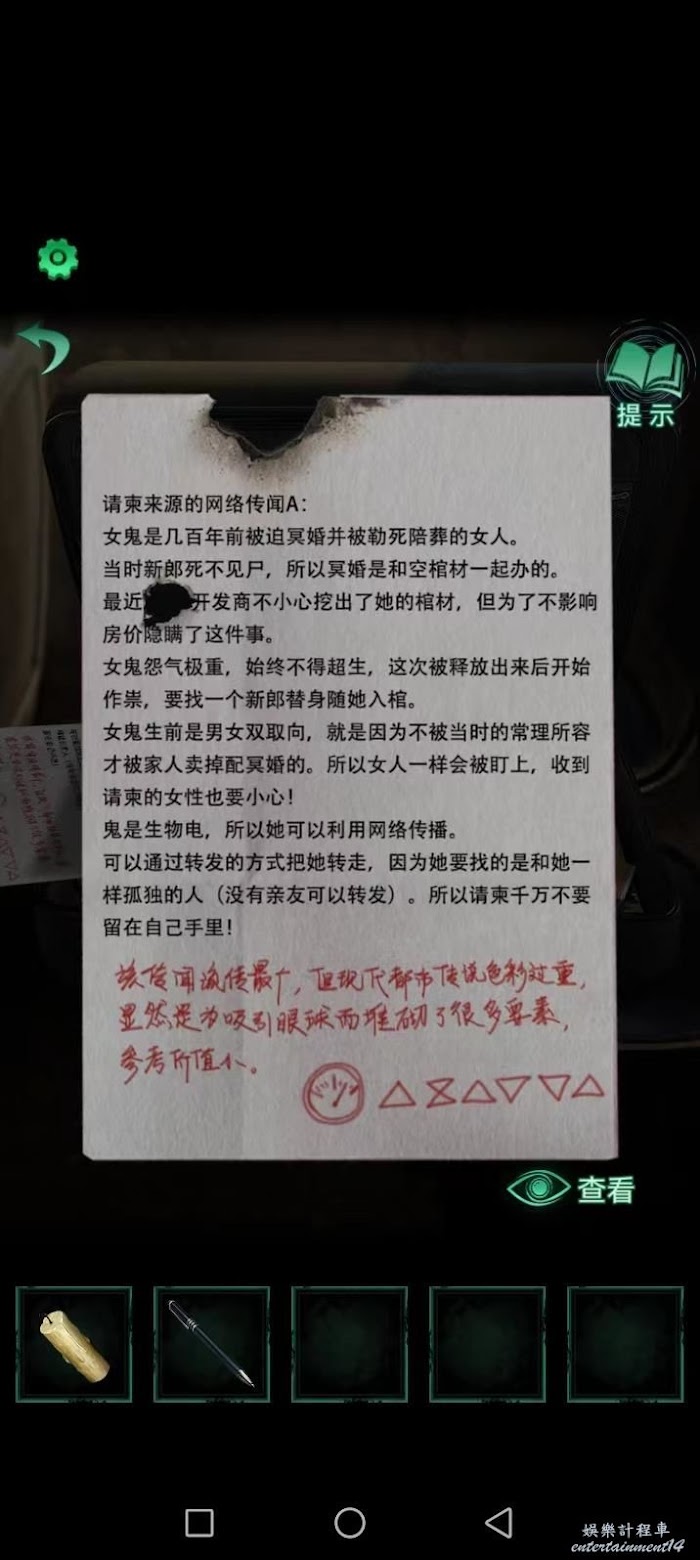 提示
请柬来源的网络传闻A：
女鬼是几百年前被迫冥婚并被勒死陪葬的女人。
当时新郎死不见尸，所以冥婚是和空棺材一起办的。
最近开发商不小心挖出了她的棺材，但为了不影响
房价隐瞒了这件事。
女鬼怨气极重，始终不得超生，这次被释放出来后开始
作祟，要找一个新郎替身随她入棺。
女鬼生前是男女双取向，就是因为不被当时的常理所容
才被家人卖掉配冥婚的。所以女人一样会被盯上，收到
请柬的女性也要小心！
鬼是生物电，所以她可以利用网络传播。
可以通过转发的方式把她转走，因为她要找的是和她一
样孤独的人（没有亲友可以转发）。所以请柬千万不要
留在自己手里！
该传闻流传最广，但现代都市传说色彩过重，
显然是为吸引眼球而堆砌了很多要素，
参考价值小。
查看
娛樂計程車
entertainment14